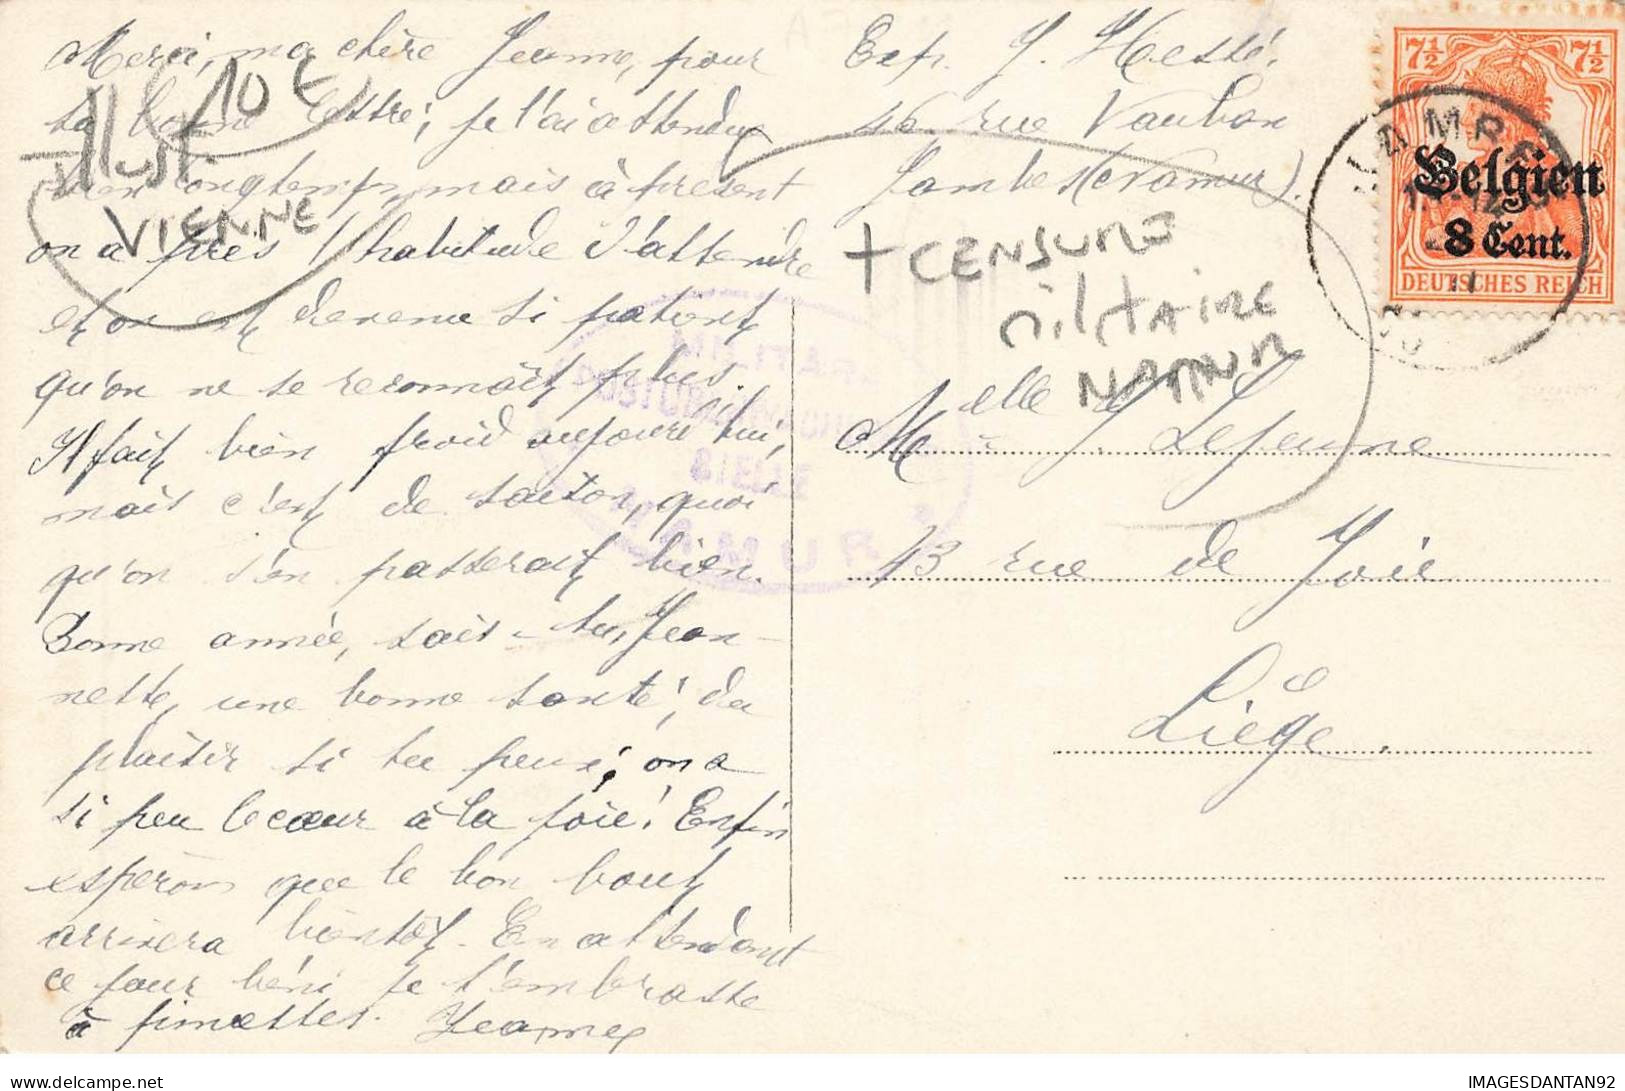 Merci, ma chère Jeanne, pour
ta bonne lettre; je l'ai attendue
bien longtemps, mais à présent
on a pris l'habitude d'attendre
et on est devenu si patient
qu'on ne se reconnaît plus.
Il fait bien froid aujourd'hui,
mais c'est de saison, quoi
qu'on s'en passerait bien.
Bonne année, sais-tu, Jean-
nette, une bonne santé, du
plaisir si tu peux; on a
si peu le cœur à la joie! Enfin
espérons que le bon bout
arrivera bientôt. En attendant
ce jour béni je t'embrasse
à pincettes. Jeanne
10 €
illust
VIENNE
Exp. J. Hesté.
46 rue Vauban
Jambes (Namur).
+ CENSURE
MILITAIRE
NAMUR
7½ 7½
Belgien
8 Cent.
DEUTSCHES REICH
Melle J. Lejeune
43 rue de Joie
Liège.
IMAGESDANTAN92
delcampe.net